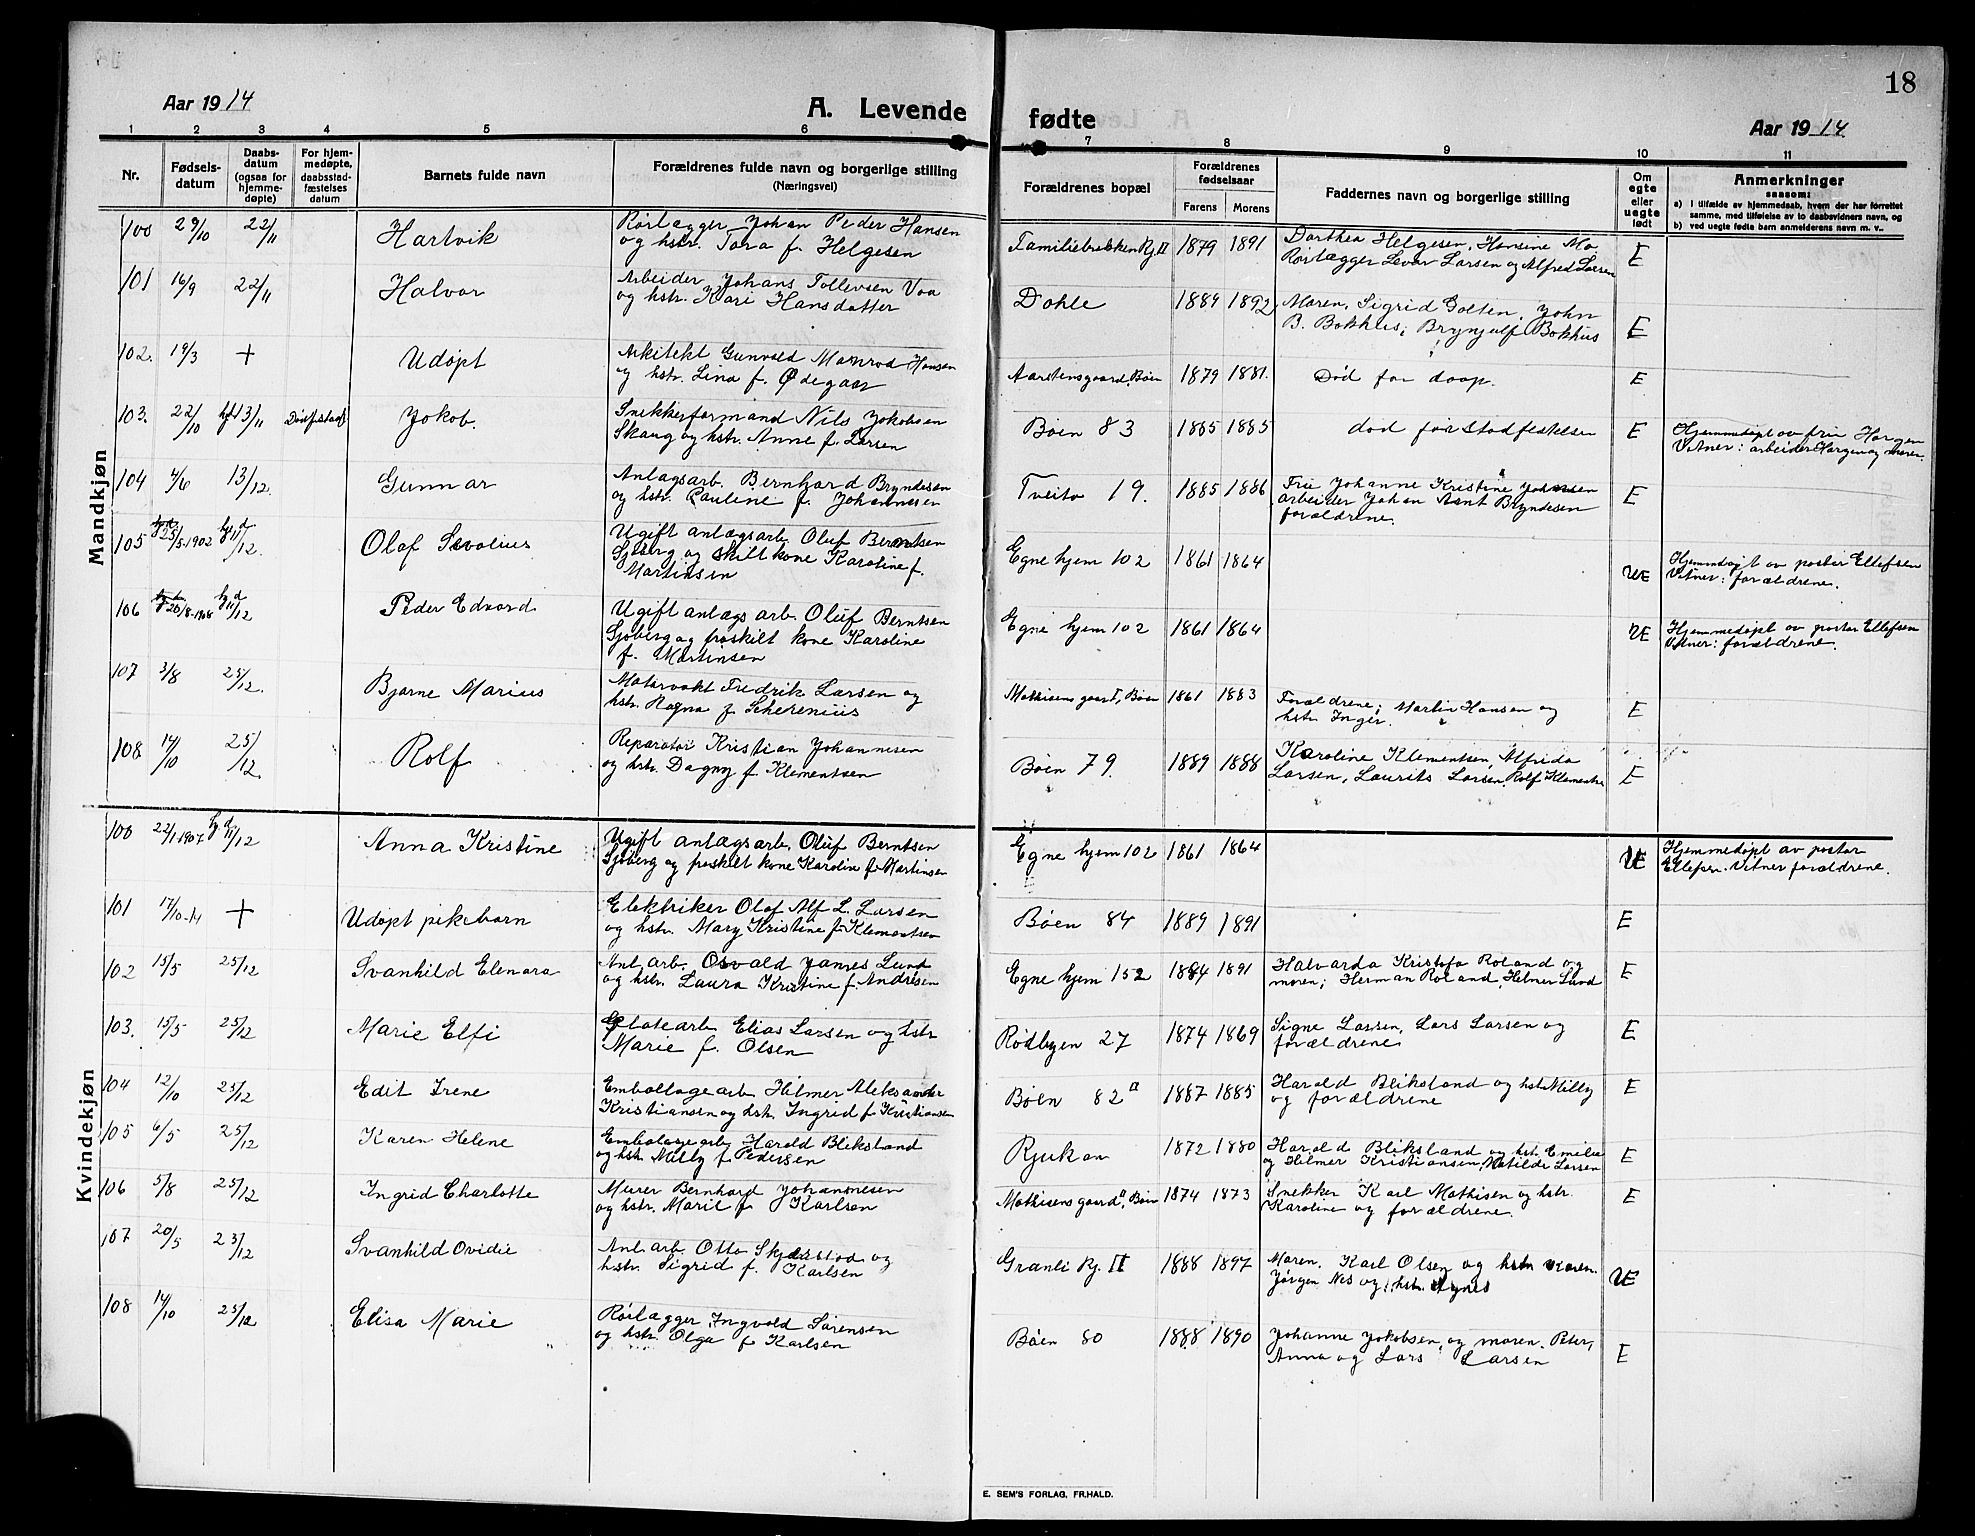 18
Aar 1914
A. Levende fødte
Aar 1914
1 2 3 4 5 6 7 8 9 10 11
Nr.
Fødsels-
datum
Daabs-
datum
(ogsaa for
hjemme-
døpte)
For hjem-
medøpte,
daabsstad-
fæstelses
datum
Barnets fulde navn
Forældrenes fulde navn og borgerlige stilling
(Næringsvei)
Forældrenes bopæl
Forældrenes
fødselsaar
Farens Morens
Faddernes navn og borgerlige stilling
Om
egte
eller
uegte
født
Anmerkninger
saasom:
a) i tilfælde av hjemmedaab, hvem der har forrettet
samme, med tilføielse av to daabsvidners navn, og
b) ved uegte fødte barn anmelderens navn m. v..
Mandkjøn
100 29/10 22/11 Hartvik Rørlægger Johan Peder Hansen Familiebrakken Rj. II 1879 1891 Dorthea Helgesen, Hansine Mo E
og hstr. Tora f. Helgesen Rørlægger Levor Larsen og Alfred Larsen
101 16/9 22/11 Halvor Arbeider Johans Tollevsen Vaa Dahle 1889 1892 Moren, Sigrid Golten, John E
og hstr. Kari Hansdatter B. Bokhus, Brynjulf Bokhus
102. 19/3 + Udøpt Arkitekt Gunvald Hansen Aarstensgaard, Bøen 1879 1881. Død før daap. E
og hstr. Lina f. Ødegaar
103. 22/10 13/11 Jokob. Snekkerformand Nils Jokobsen Bøen 83 1885 1885 død før stadfestelsen E Hjemmedøpt av fru Horgen
Skaug og hstr. Anne f. Larsen Vitner: arbeider Horgen og moren.
104 4/6 13/12. Gunnar Anlagsarb. Bernhard Bryndesen Tveito 19. 1885 1886 Fru Johanne Kristine Johansen E
og hstr. Pauline f. Johannesen arbeider Johan Aant Bryndesen
forældrene.
105 25/5-1902 hjd 11/12. Olaf Sevolius Ugift anlægsarb. Oluf Berntsen Egne hjem 102 1861 1864 UE Hjemmedøpt av pastor Ellefsen
Sjøberg og skilt kone Karoline f. Vitner: forældrene.
Martinsen
106 26/8-1908 hjd 11/12 Peder Edvard Ugift anlægs arb. Oluf Berntsen Egne hjem 102 1861 1864 UE Hjemmedøpt av pastor Ellefsen
Sjøberg og fraskilt kone Karoline Vitner: forældrene.
f. Martinsen
107 3/8 25/12. Bjarne Marius Motorvakt Fredrik Larsen og Mathisens gaard I, Bøen 1861 1883 Forældrene; Martin Hansen og E
hstr. Ragna f. Scherenius hstr. Inger.
108 14/10 25/12. Rolf Reparatør Kristian Johannesen Bøen 79. 1889 1888 Karoline Klementsen, Alfrida E
og hstr. Dagny f. Klementsen Larsen, Laurits Larsen, Rolf Klementsen
Kvindekjøn
100 22/1-1907 hjd 11/12 Anna Kristine Ugift anlægsarb. Oluf Berntsen Egne hjem 102 1861 1864 UE Hjemmedøpt av pastor
Sjøberg og fraskilt kone Karoline f. Martinsen Ellefsen. Vitner forældrene.
101 17/10-14 + Udøpt pikebarn Elektriker Olaf Alf L. Larsen Bøen 84 1889 1891 E
og hstr. Mary Kristine f. Klementsen
102 15/5 25/12 Svanhild Elenora Anl. arb. Osvald James Lund Egne hjem 152 1884 1891 Halvarda Kristofa Roland og E
og hstr. Laura Kristine f. Andresen moren; Herman Roland, Helmer Lund
103. 15/5 25/12 Marie Elfi Elias Larsen og hstr. Rødbyen 27 1874 1869 Signe Larsen, Lars Larsen og E
Marie f. Olsen forældrene
104 12/10 25/12 Edit Irene Emballagearb. Hilmer Aleksander Bøen 82 a 1887 1885 Harald Bliksland og hstr. Milly E
Kristiansen og hstr. Ingrid f. Kristiansen og forældrene
105 6/5 25/12 Karen Helene Embalagearb. Harald Bliksland Rjukan 1872 1880 Harald Bliksland og hstr. Emilie E
og hstr. Milly f. Pedersen og Hilmer Kristiansen, Matilde Larsen
106 5/8 25/12 Ingrid Charlotte Murer Bernhard Johannesen Mathisens gaard II, Bøen 1874 1873 Snekker Karl Mathisen og hstr. E
og hstr. Marie f. Karlsen Karoline og forældrene.
107 20/5 25/12 Svanhild Ovidie Anl. arb. Otto Skjerstad og Granli Rj. II 1888 1897 Moren, Karl Olsen og hstr. Karen. UE
hstr. Sigrid f. Karlsen Jørgen Nes og hstr. Agnes
108 14/10 25/12 Elisa Marie Rørlægger Ingvald Sørensen Bøen 80 1888 1890 Johanne Jokobsen og moren. Peter, E
og hstr. Olga f. Karlsen Anna og Lars Larsen
E. SEM'S FORLAG, FR.HALD.